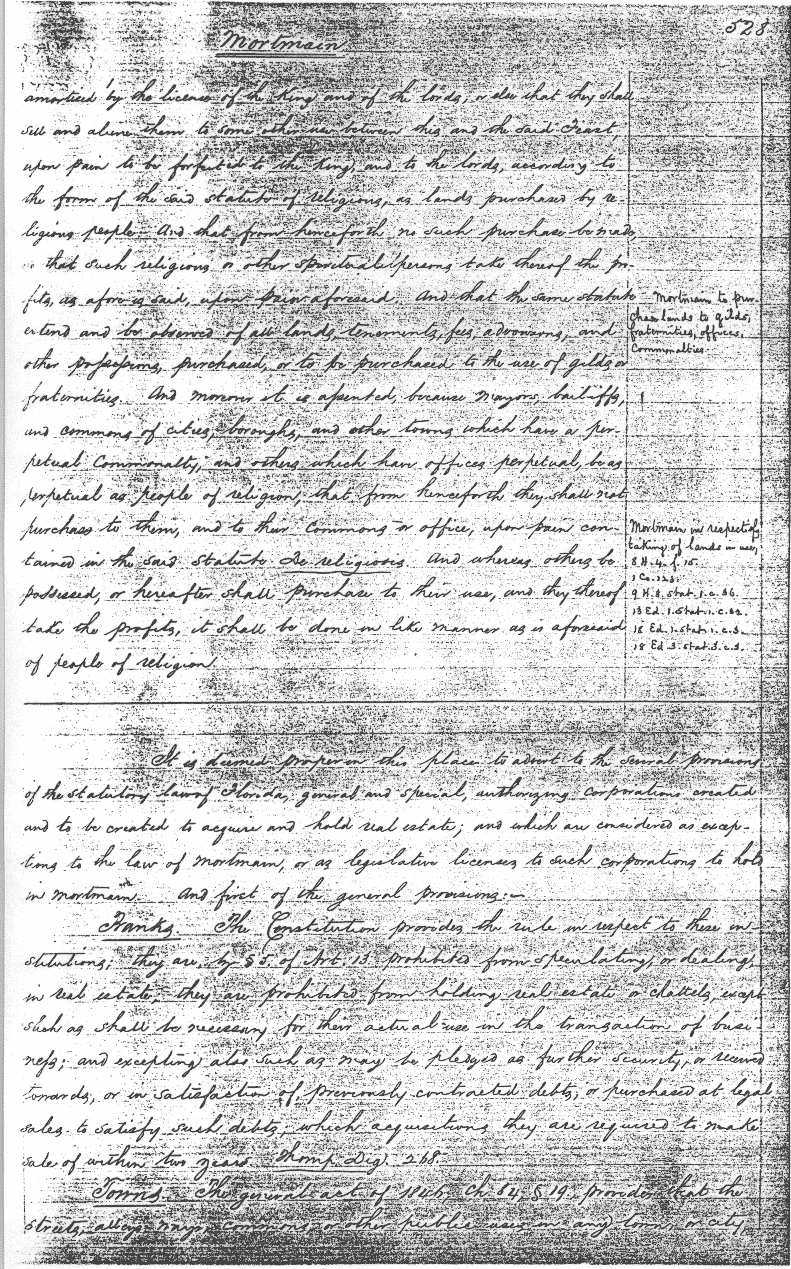 528
Mortmain
amortised by the license of the King and of the lords; or else that they shall
sell and aliene them to some other use between this and the said Feast,
upon pain to be forfeited to the King, and to the lords, according to
the form of the said statute of religious, as lands purchased by re-
ligious people. And that from henceforth no such purchase be made,
so that such religious or other spiritual persons take thereof the pro-
fits, as afore is said, upon pain aforesaid. And that the same statute
extend and be observed of all lands, tenements, fees, advowsons, and
other possessions, purchased, or to be purchased to the use of gilds or
fraternities. And moreover it is assented, because mayors, bailiffs,
and commons of cities, boroughs, and other towns which have a per-
petual Commonalty, and others which have offices perpetual, be as
perpetual as people of religion, that from henceforth they shall not
purchase to them, and to their commons or office, upon pain con-
tained in the said statute De religiosis. And whereas others be
possessed, or hereafter shall purchase to their use, and they thereof
take the profits, it shall be done in like manner as is aforesaid
of people of religion.
Mortmain to pur-
chase lands to gilds,
fraternities, offices,
Commonalties.
Mortmain in respect of
taking of lands in use,
8 H. 4. f. 15.
1 Co. 123.
9 H. 3. stat. 1. c. 36.
13 Ed. 1. stat. 1. c. 32.
18 Ed. 1. stat. 1. c. 3.
18 Ed. 3. stat. 3. c. 3.
It is deemed proper in this place to advert to the several provisions
of the statutory law of Florida, general and special, authorizing corporations created
and to be created to acquire and hold real estate; and which are considered as excep-
tions to the law of mortmain, or as legislative licenses to such corporations to hold
in mortmain. And first of the general provisions:-
Banks. The Constitution provides the rule in respect to these in-
stitutions; they are, by § 5. of Art. 13. prohibited from speculating, or dealing,
in real estate; they are prohibited from holding real estate or chattels, except
such as shall be necessary for their actual use in the transaction of busi-
ness; and excepting also such as may be pledged as further security, or received
towards, or in satisfaction of, previously contracted debts, or purchased at legal
sales to satisfy such debts; which acquisitions they are required to make
sale of within two years. Thomp. Dig. 268.
Towns. The general act of 1846, ch. 84, § 19. provides that the
streets, alleys, ways, commons or other public uses in any town or city,